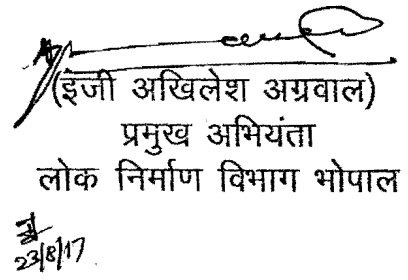 (इंजी अखिलेश अग्रवाल)
प्रमुख अभियंता
लोक निर्माण विभाग भोपाल
23/8/17